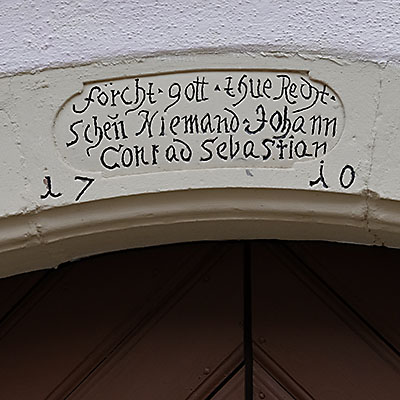 forcht · gott · thue Recht ·
scheñ Niemand · Johann
Conrad Sebastian
17 10